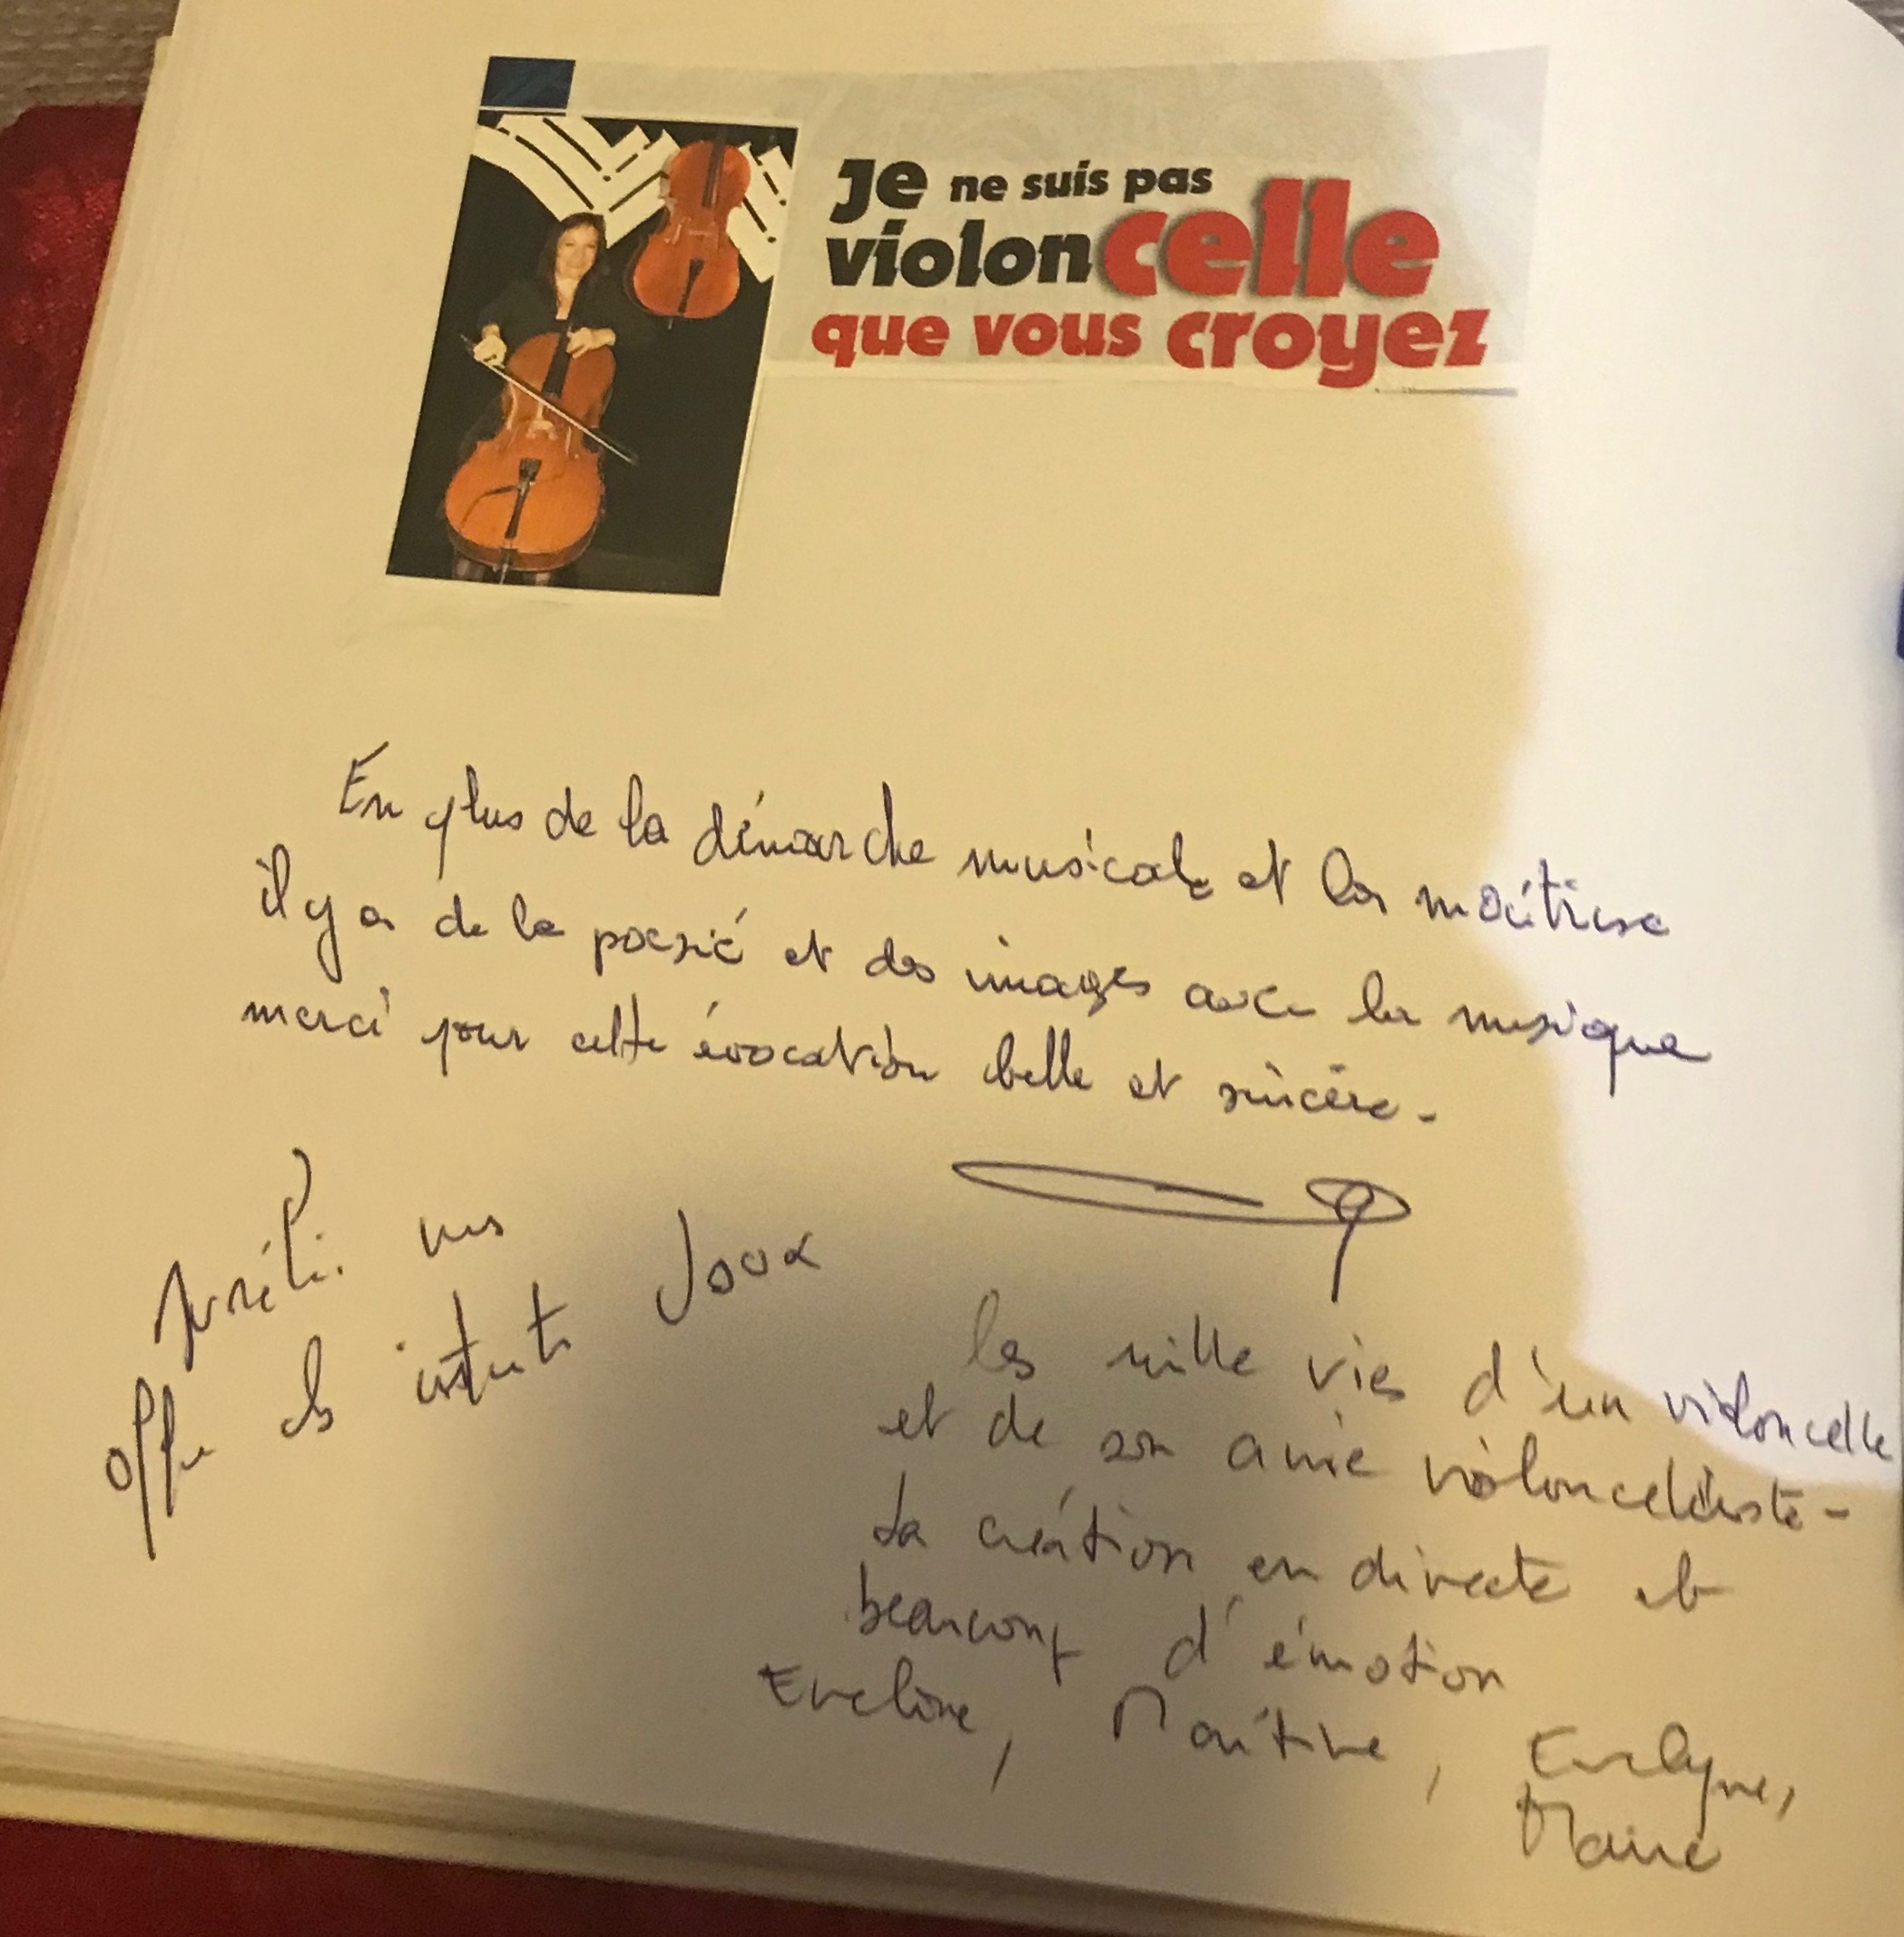 Je ne suis pas
violoncelle
que vous croyez
En plus de la démarche musicale et la maîtrise
il y a de la poesié et des images avec la musique
merci pour cette évocation belle et sincère -
offre
les mille vies d'un violoncelle
et de son amie violonceliste -
La création en directe et
beaucoup d'émotion
Eveline, Martine, Evelyne,
Marie